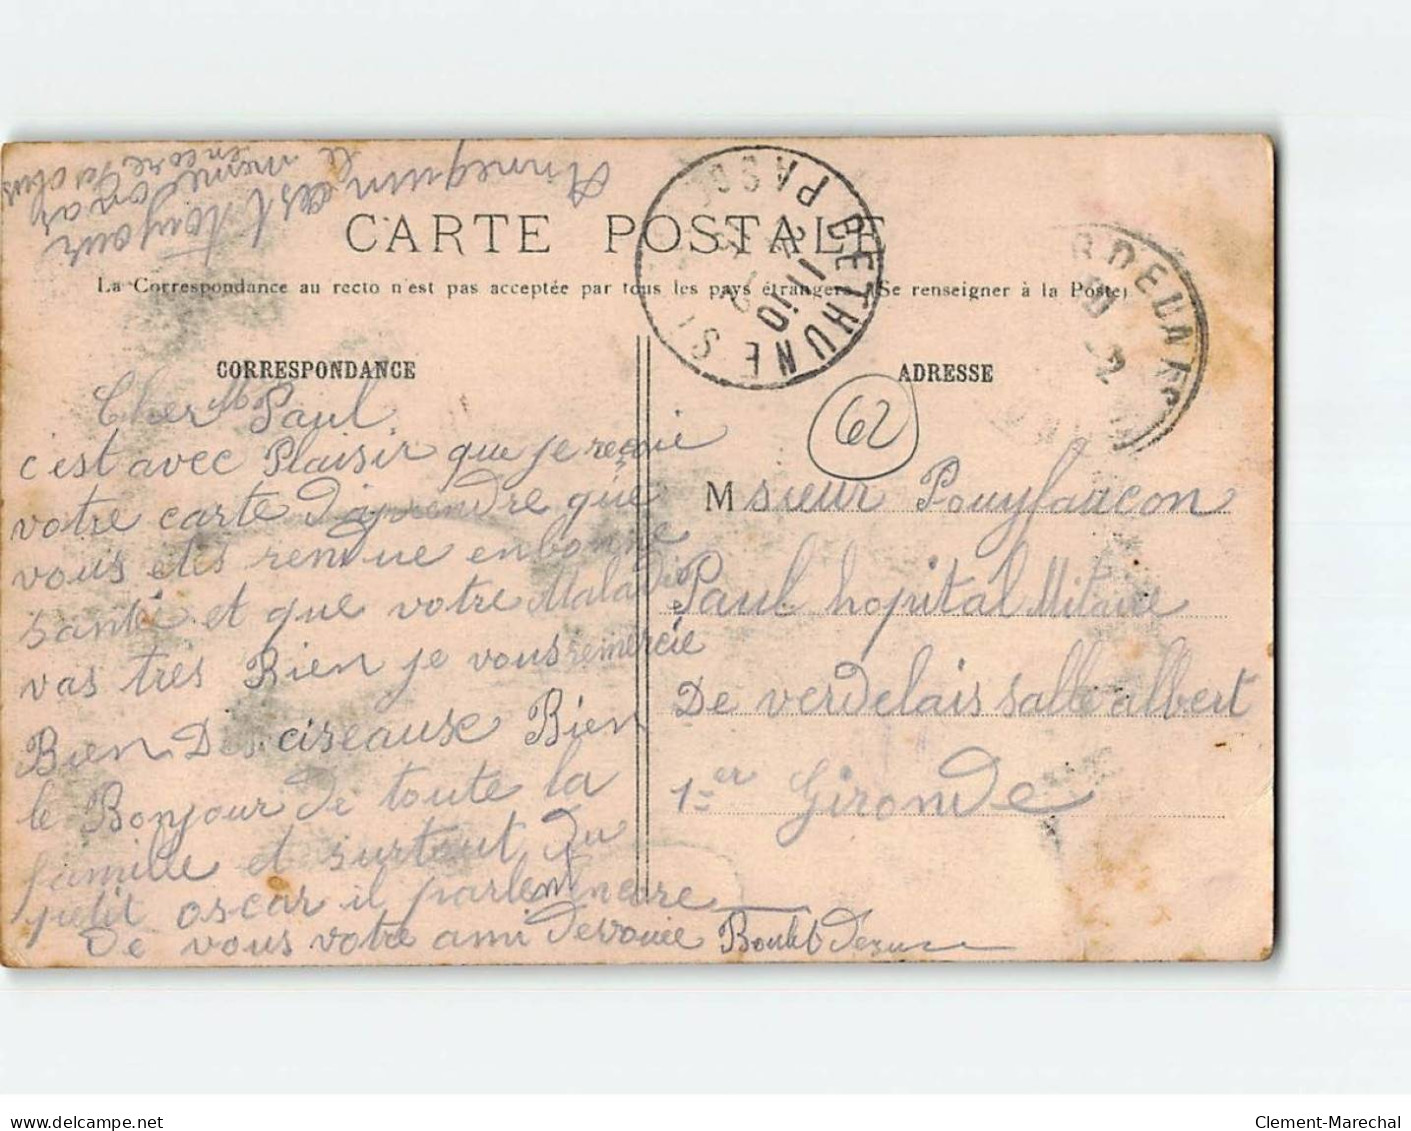 Annequin est toujour
le mesme on a
encore
CARTE POSTALE
La Correspondance au recto n'est pas acceptée par tous les pays étrangers (Se renseigner à la Poste)
BETHUNE
PAS DE
11 10
BORDEAUX
CORRESPONDANCE
ADRESSE
62
Cher M Paul
c'est avec Plaisir que je reçoie
votre carte D'aprendre que
vous etes rendue en bonne
santé et que votre Maladie
vas tres Bien je vous remercie
Bien Des ciseaux Bien
le Bonjour de toute la
famille et surtout du
petit oscar il parlent encore
De vous votre ami devouée
Msieur Pouyfaucon
Paul hopital Militaire
De verdelais salle albert
1er Gironde
Clement-Marechal